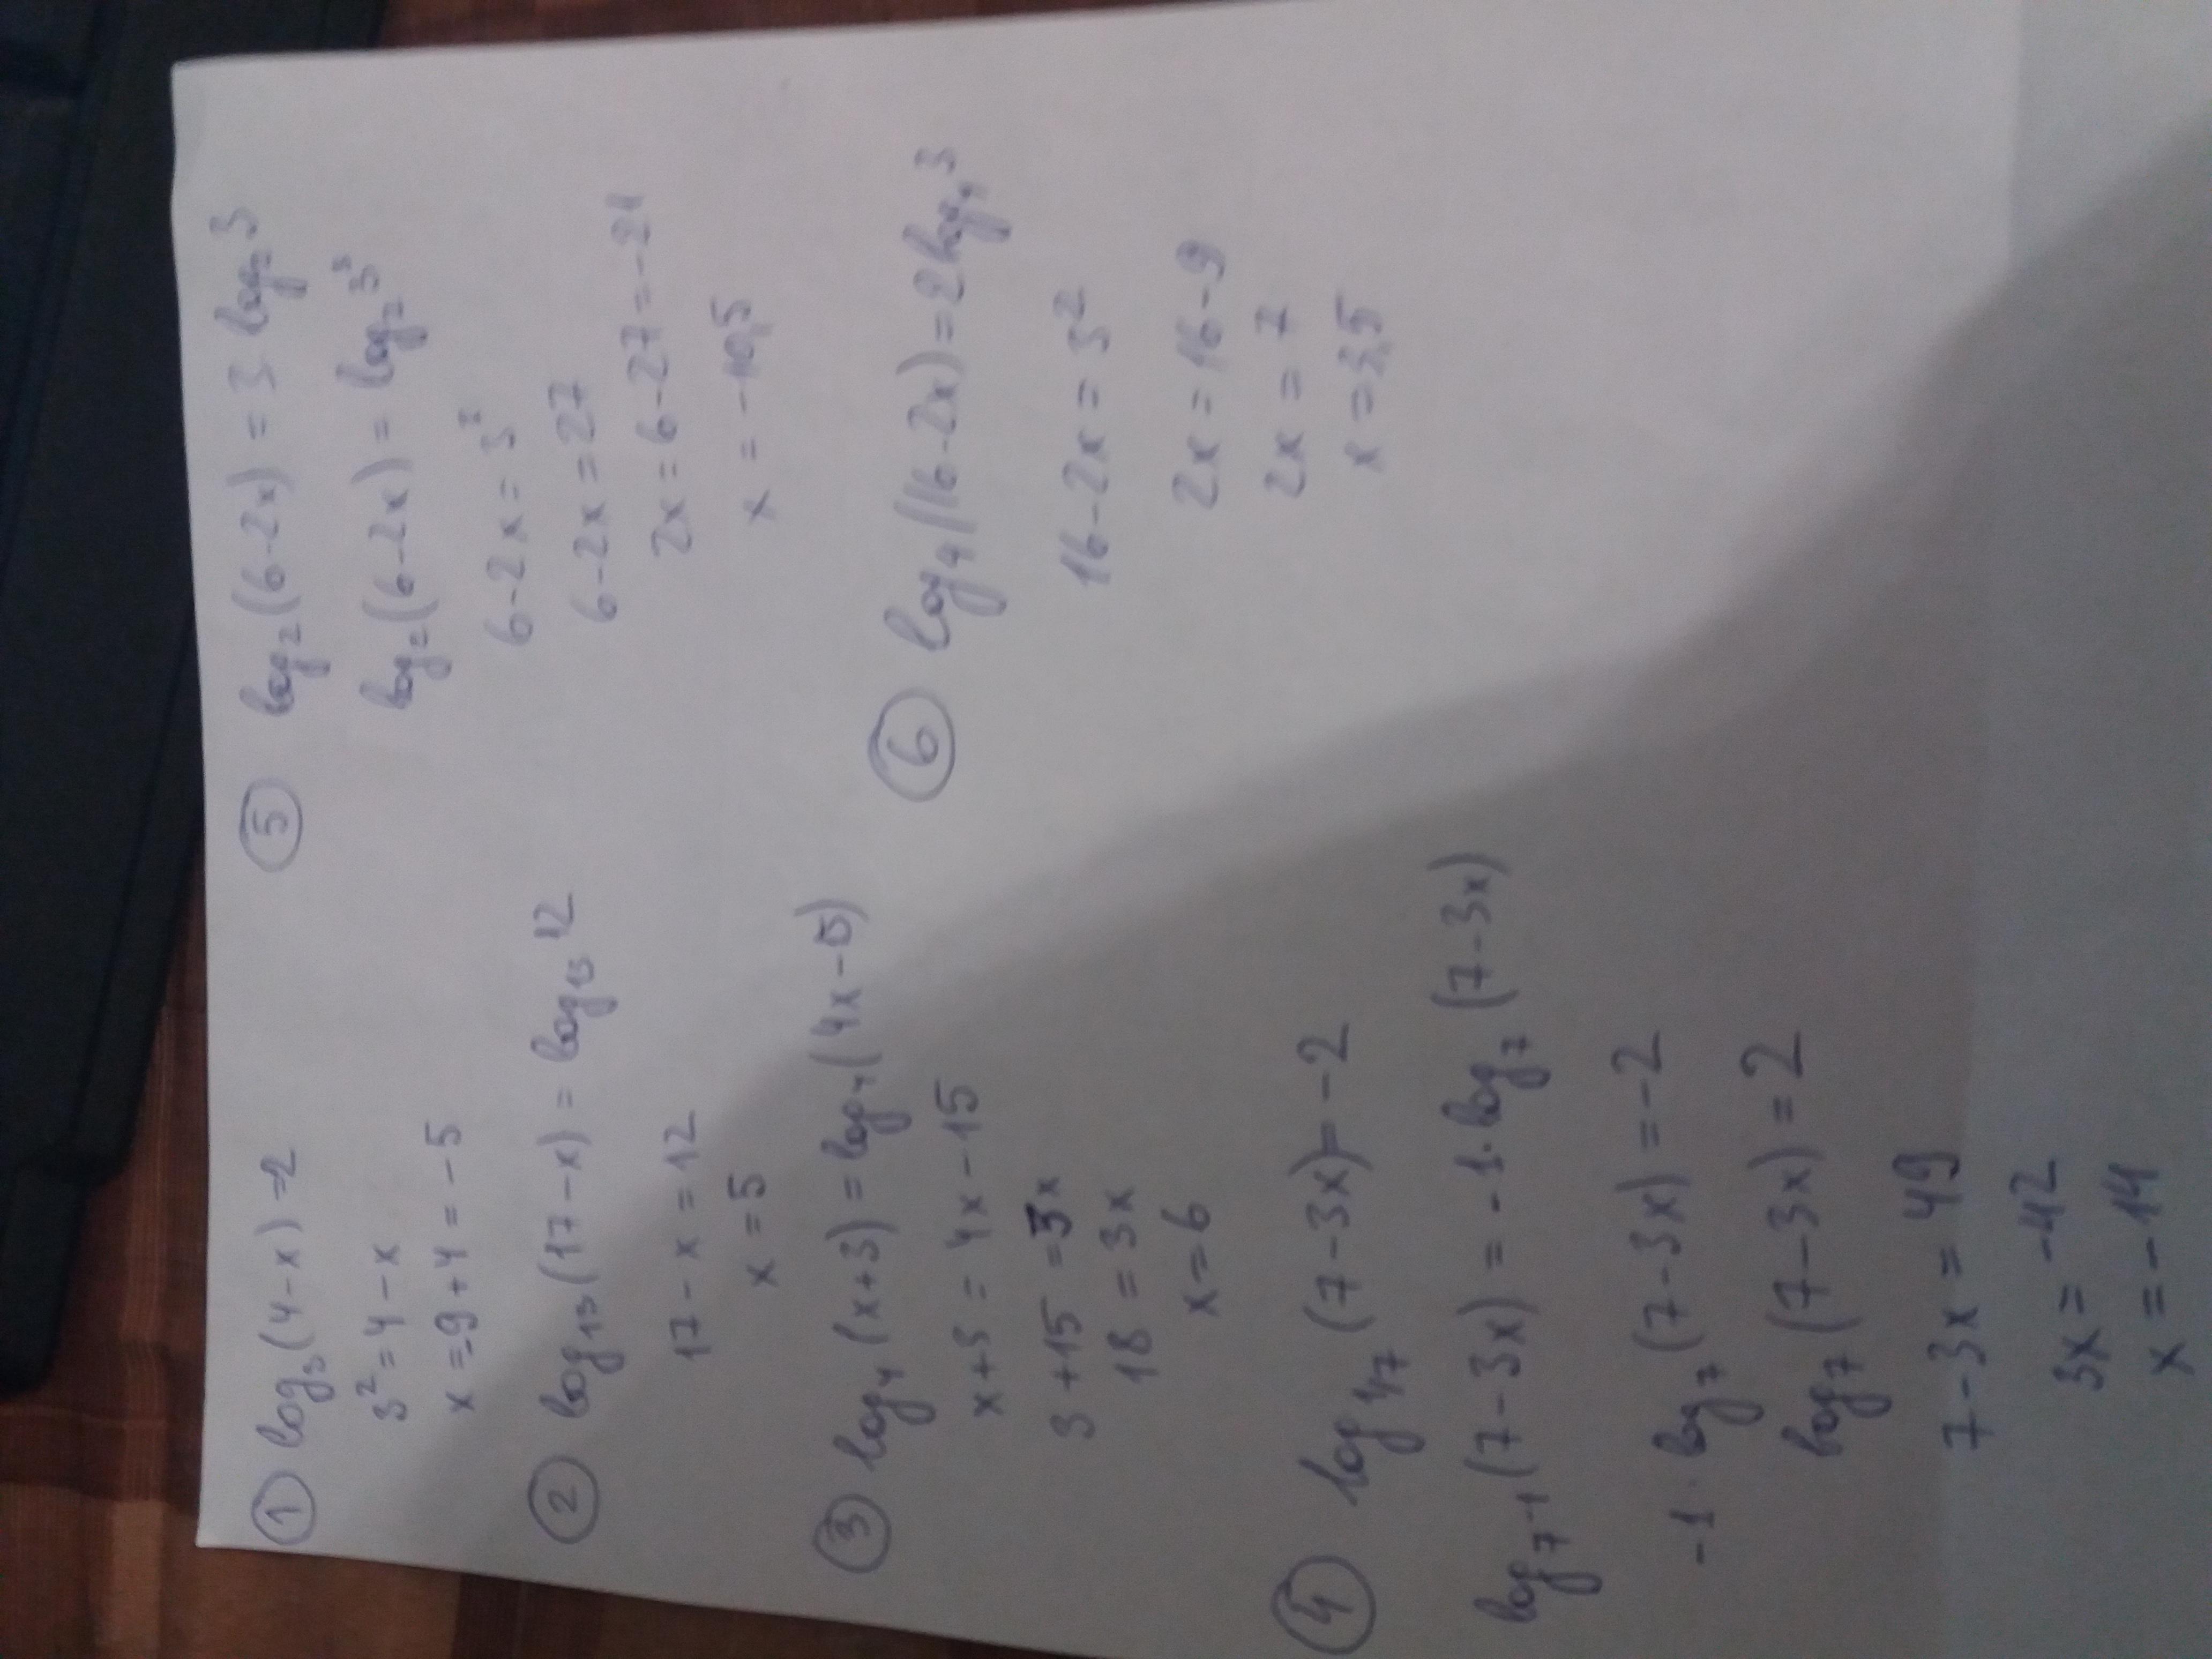 ① log₃(4-x)=2
3²=4-x
x=-9+4=-5
② log₁₃(17-x)=log₁₃12
17-x=12
x=5
③ log₄(x+3)=log₄(4x-15)
x+3=4x-15
3+15=3x
18=3x
x=6
④ log₁/₇(7-3x)=-2
log₇₋₁(7-3x)=-1·log₇(7-3x)
-1·log₇(7-3x)=-2
log₇(7-3x)=2
7-3x=49
3x=-42
x=-14
⑤ log₂(6-2x)=3log₂3
log₂(6-2x)=log₂3³
6-2x=3³
6-2x=27
2x=6-27=-21
x=-10,5
⑥ log₄(16-2x)=2log₄3
16-2x=3²
2x=16-9
2x=7
x=3,5